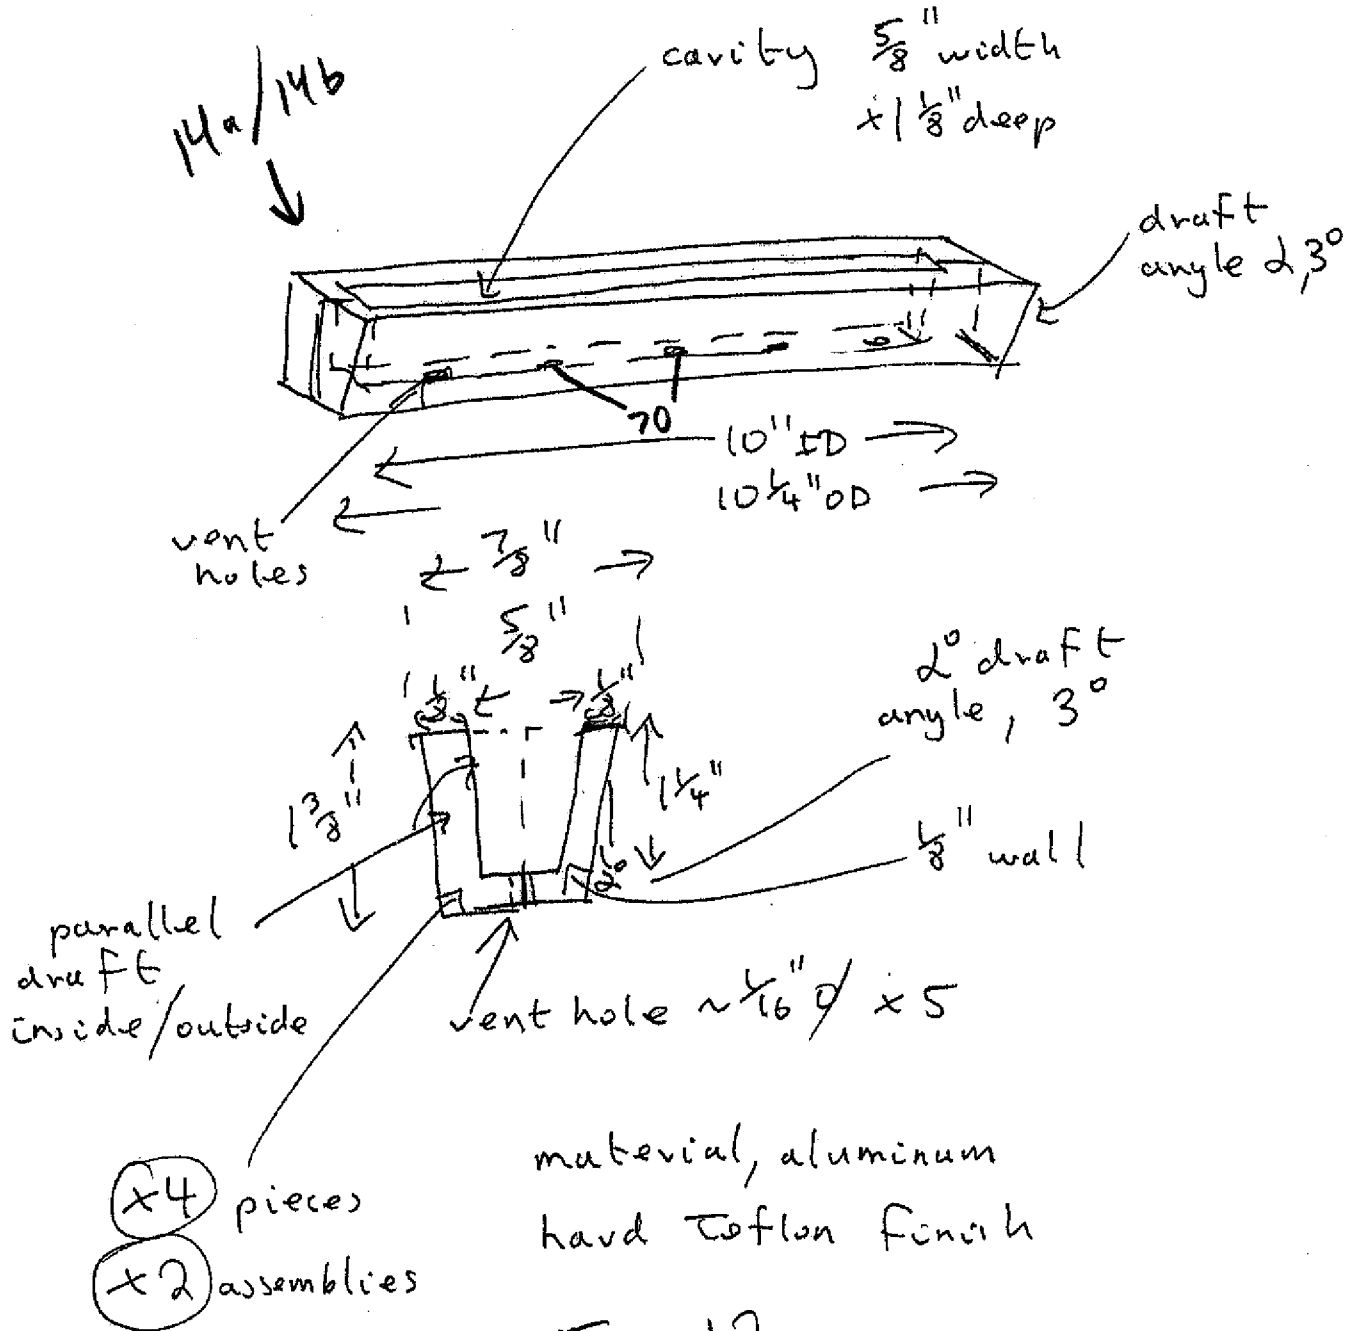 14a/14b
cavity 5/8" width
x 1 1/8" deep
draft
angle 2,3°
70
10" ID
10 1/4" OD
vent
holes
7/8"
5/8"
1/8" 1/8"
2° draft
angle, 3°
1 3/8"
1 1/4"
2°
1/8" wall
parallel
draft
inside/outside
vent hole ~ 1/16" Ø x 5
x4 pieces
x2 assemblies
material, aluminum
hard Teflon finish